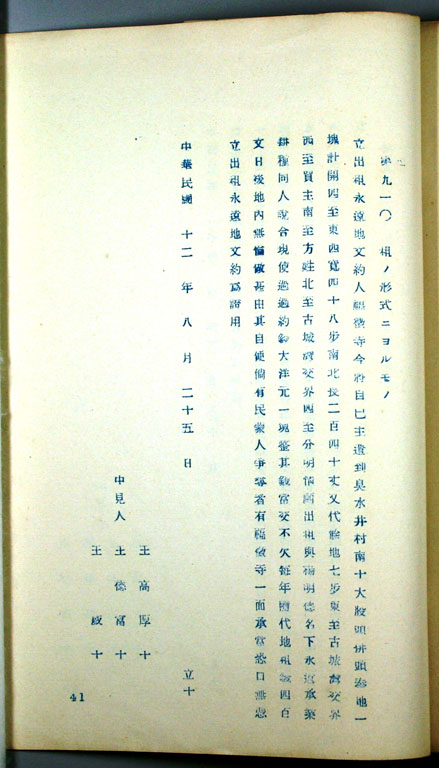 九一〇 租ノ形式ニヨルモノ
立出租永遠地文約人福徵寺今將自己主遺到臭水井村南十大股頭併頭 地一
塊計開四至東西寬四十八步南北長二百四十丈又代 地七步東至古城 交界
西至買主南至方姓北至古城 交界四至分明情 出租與楊明德名下永遠承業
耕種同人說合現使過 約 大洋元一塊整其 當交不欠每年 代地租 四百
文日後地內 由其自便倘有民蒙人爭奪者有福 寺一面承當恐口無憑
立出租永遠地文約為證用
中華民國 十二 年 八 月 二十五 日
立十
中見人 王 高 厚 十
王 德 富 十
王 威 十
41